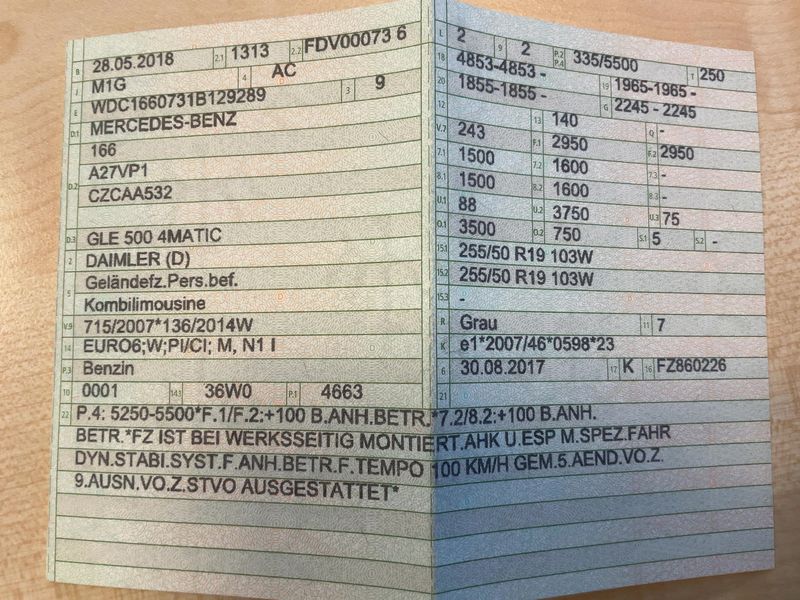 B 28.05.2018 2.1 1313 2.2 FDV00073 6
J M1G 4 AC
E WDC1660731B129289 3 9
D.1 MERCEDES-BENZ
166
D.2 A27VP1
CZCAA532
D.3 GLE 500 4MATIC
2 DAIMLER (D)
5 Geländefz.Pers.bef.
Kombilimousine
V.9 715/2007*136/2014W
14 EURO6;W;PI/CI; M, N1 I
P.3 Benzin
10 0001 14.1 36W0 P.1 4663
L 2 9 2 P.2 P.4 335/5500 T 250
18 4853-4853 - 19 1965-1965 -
20 1855-1855 - G 2245 - 2245
12 13 140 Q -
V.7 243 F.1 2950 F.2 2950
7.1 1500 7.2 1600 7.3 -
8.1 1500 8.2 1600 8.3 -
U.1 88 U.2 3750 U.3 75
O.1 3500 O.2 750 S.1 5 S.2 -
15.1 255/50 R19 103W
15.2 255/50 R19 103W
15.3 -
R Grau 11 7
K e1*2007/46*0598*23
6 30.08.2017 17 K 16 FZ860226
21
22 P.4: 5250-5500*F.1/F.2:+100 B.ANH.BETR.*7.2/8.2:+100 B.ANH.
BETR.*FZ IST BEI WERKSSEITIG MONTIERT.AHK U.ESP M.SPEZ.FAHR
DYN.STABI.SYST.F.ANH.BETR.F.TEMPO 100 KM/H GEM.5.AEND.VO.Z.
9.AUSN.VO.Z.STVO AUSGESTATTET*